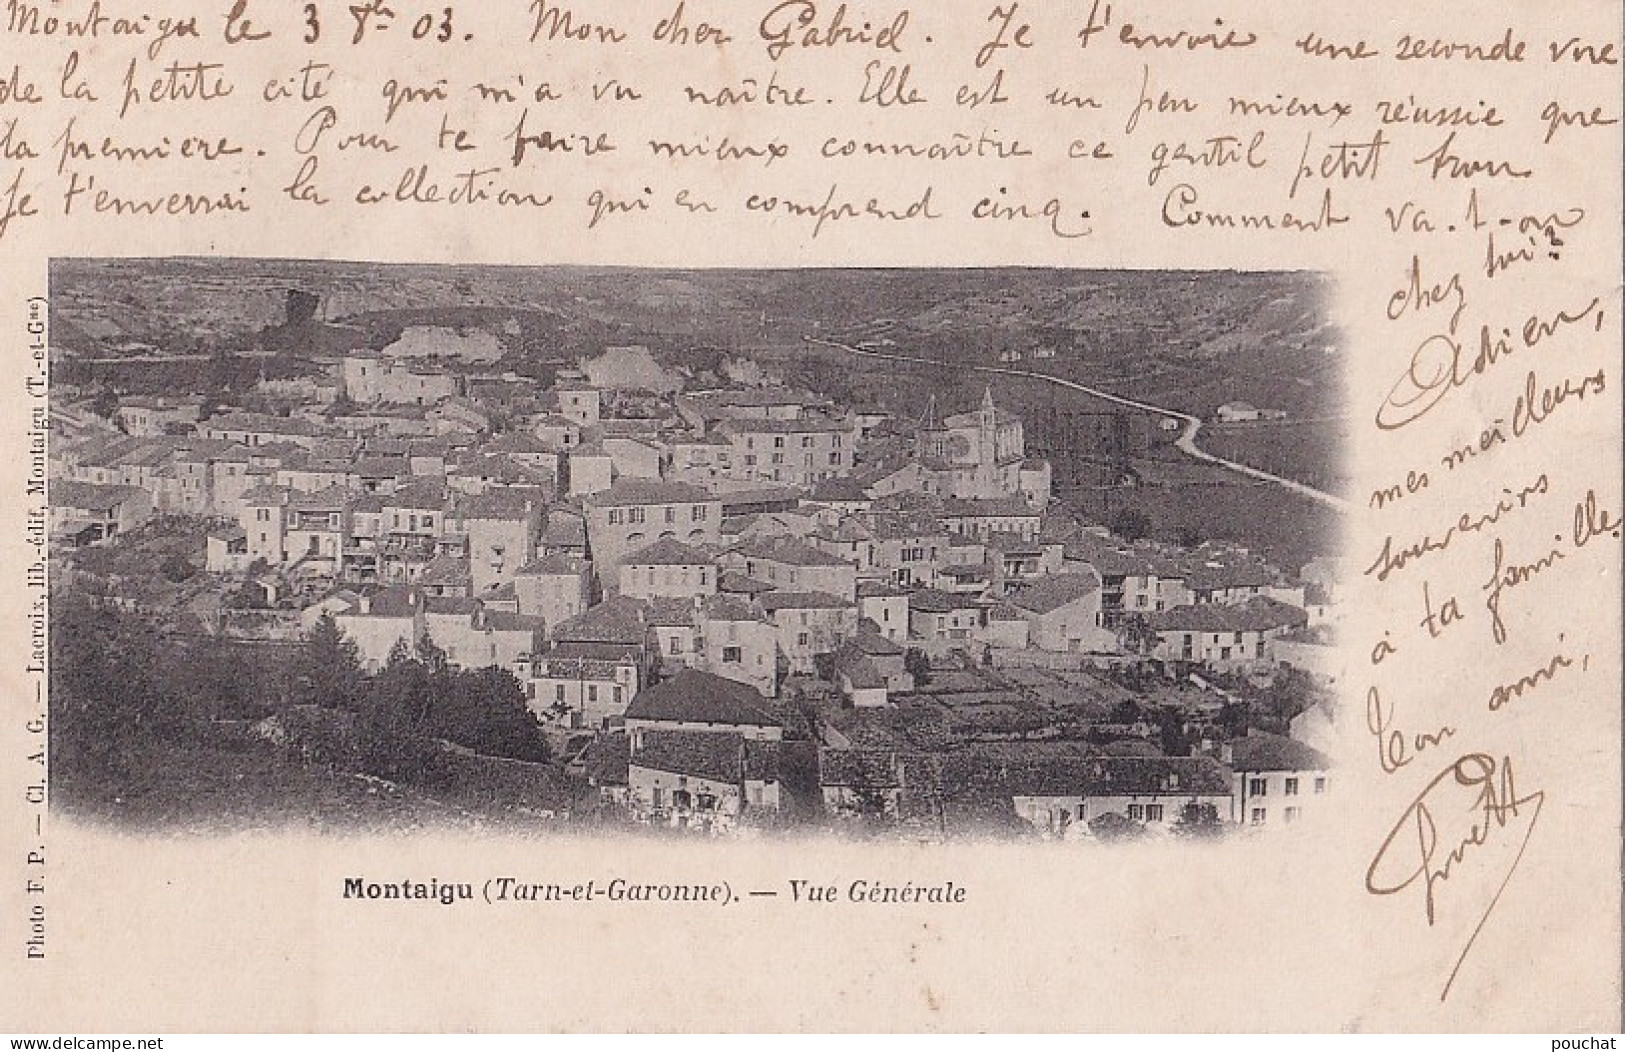 Montaigu le 3 8bre 03. Mon cher Gabriel. Je t'envoie une seconde vue
de la petite cité qui m'a vu naître. Elle est un peu mieux réussie que
la première. Pour te faire mieux connaître ce gentil petit trou
je t'enverrai la collection qui en comprend cinq. Comment va-t-on
chez toi?
Adieu,
mes meilleurs
souvenirs
à ta famille.
Ton ami,
Photo F. P. — Cl. A. G. — Lacroix, lib.-édit, Montaigu (T.-et-Gne)
Montaigu (Tarn-et-Garonne). — Vue Générale
delcampe.net
pouchat